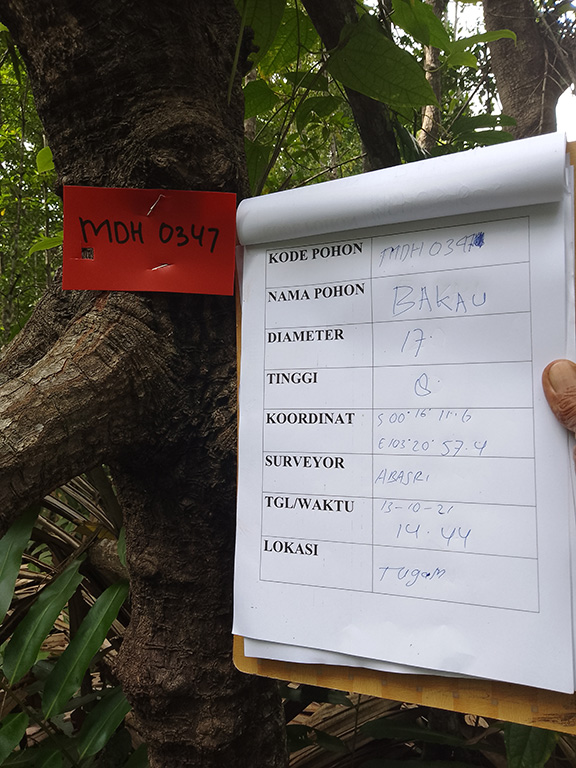 MDH 0347
KODE POHON MDH 0347
NAMA POHON BAKAU
DIAMETER 17.
TINGGI 8.
KOORDINAT S 00° 16' 11.6
E 103° 20' 57.4
SURVEYOR ABASRI
TGL/WAKTU 13-10-21
14.44
LOKASI Tugam